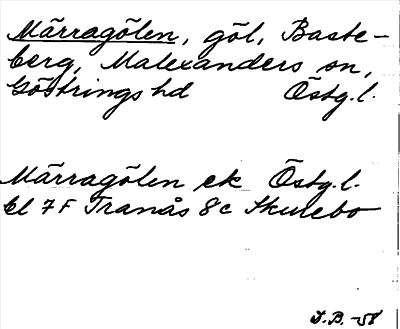 Märragölen, göl, Baste-
berg, Malexanders sn,
Göstrings hd Östg.l.
Märragölen ek Östg.l.
bl 7F Tranås 8c Skurebo
S.B. -58